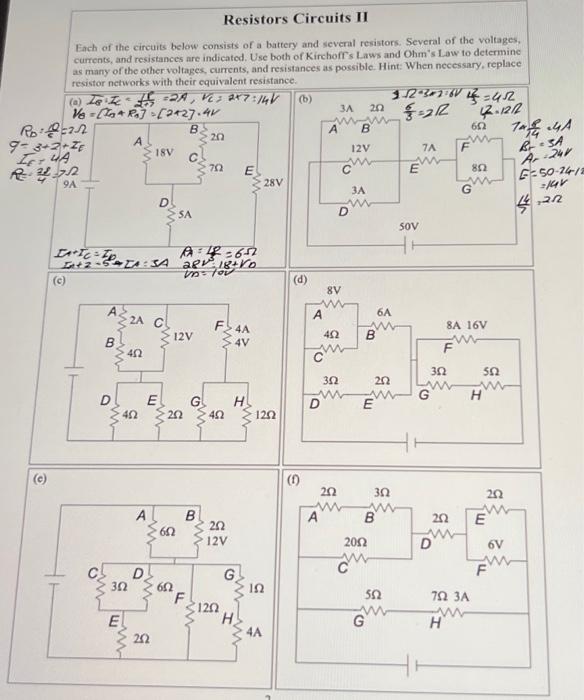 Resistors Circuits II
Each of the circuits below consists of a battery and several resistors. Several of the voltages,
currents, and resistances are indicated. Use both of Kirchoff's Laws and Ohm's Law to determine
as many of the other voltages, currents, and resistances as possible. Hint: When necessary, replace
resistor networks with their equivalent resistance.
(a) IB=IC = 18/2+7 = 2A, VC = 2x7 = 14V
VB = 4V
RD = 2Ω
9 = 3+2+IE
IE = 4A
28/4 = 7Ω
A 18V
B 2Ω
C 7Ω
D 5A
E 28V
9A
IA+IC=ID
IA+2=5 IA=3A
RA = 18/3 = 6Ω
28V = 18+VD
VD = 10V
(b)
= 4Ω
6/3 = 2Ω
= 12Ω
3A 2Ω
A B
12V
C
3A
D
7A
E
6Ω
F
8Ω
G
50V
= 4A
= 3A
= 24V
= 14V
14/7 = 2Ω
(c)
A 2A
B 4Ω
C 12V
F 4A
4V
D 4Ω
E 2Ω
G 4Ω
H 12Ω
(d)
8V
A
4Ω
C
6A
B
8A 16V
F
3Ω 2Ω
D E
3Ω 5Ω
G H
(e)
A 6Ω
B 2Ω
12V
C 3Ω
D 6Ω
E 2Ω
F 12Ω
G 1Ω
H 4A
(f)
2Ω 3Ω
A B
20Ω
C
2Ω
D
2Ω
E
6V
F
5Ω
G
7Ω 3A
H